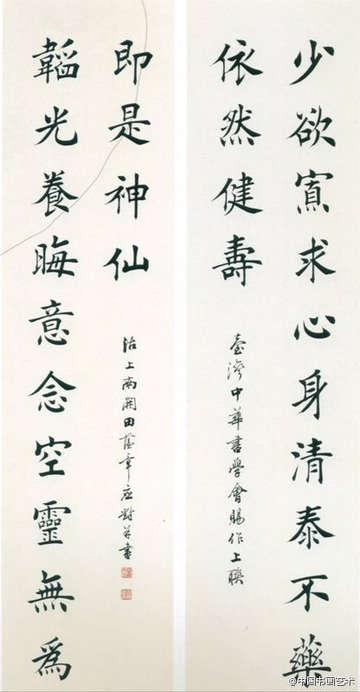 少欲寡求心身清泰不藥
依然健壽
臺灣中華書學會賜作上聯
韜光養晦意念空靈無為
即是神仙
沽上南開田蘊章应對并書
@中国书画艺术